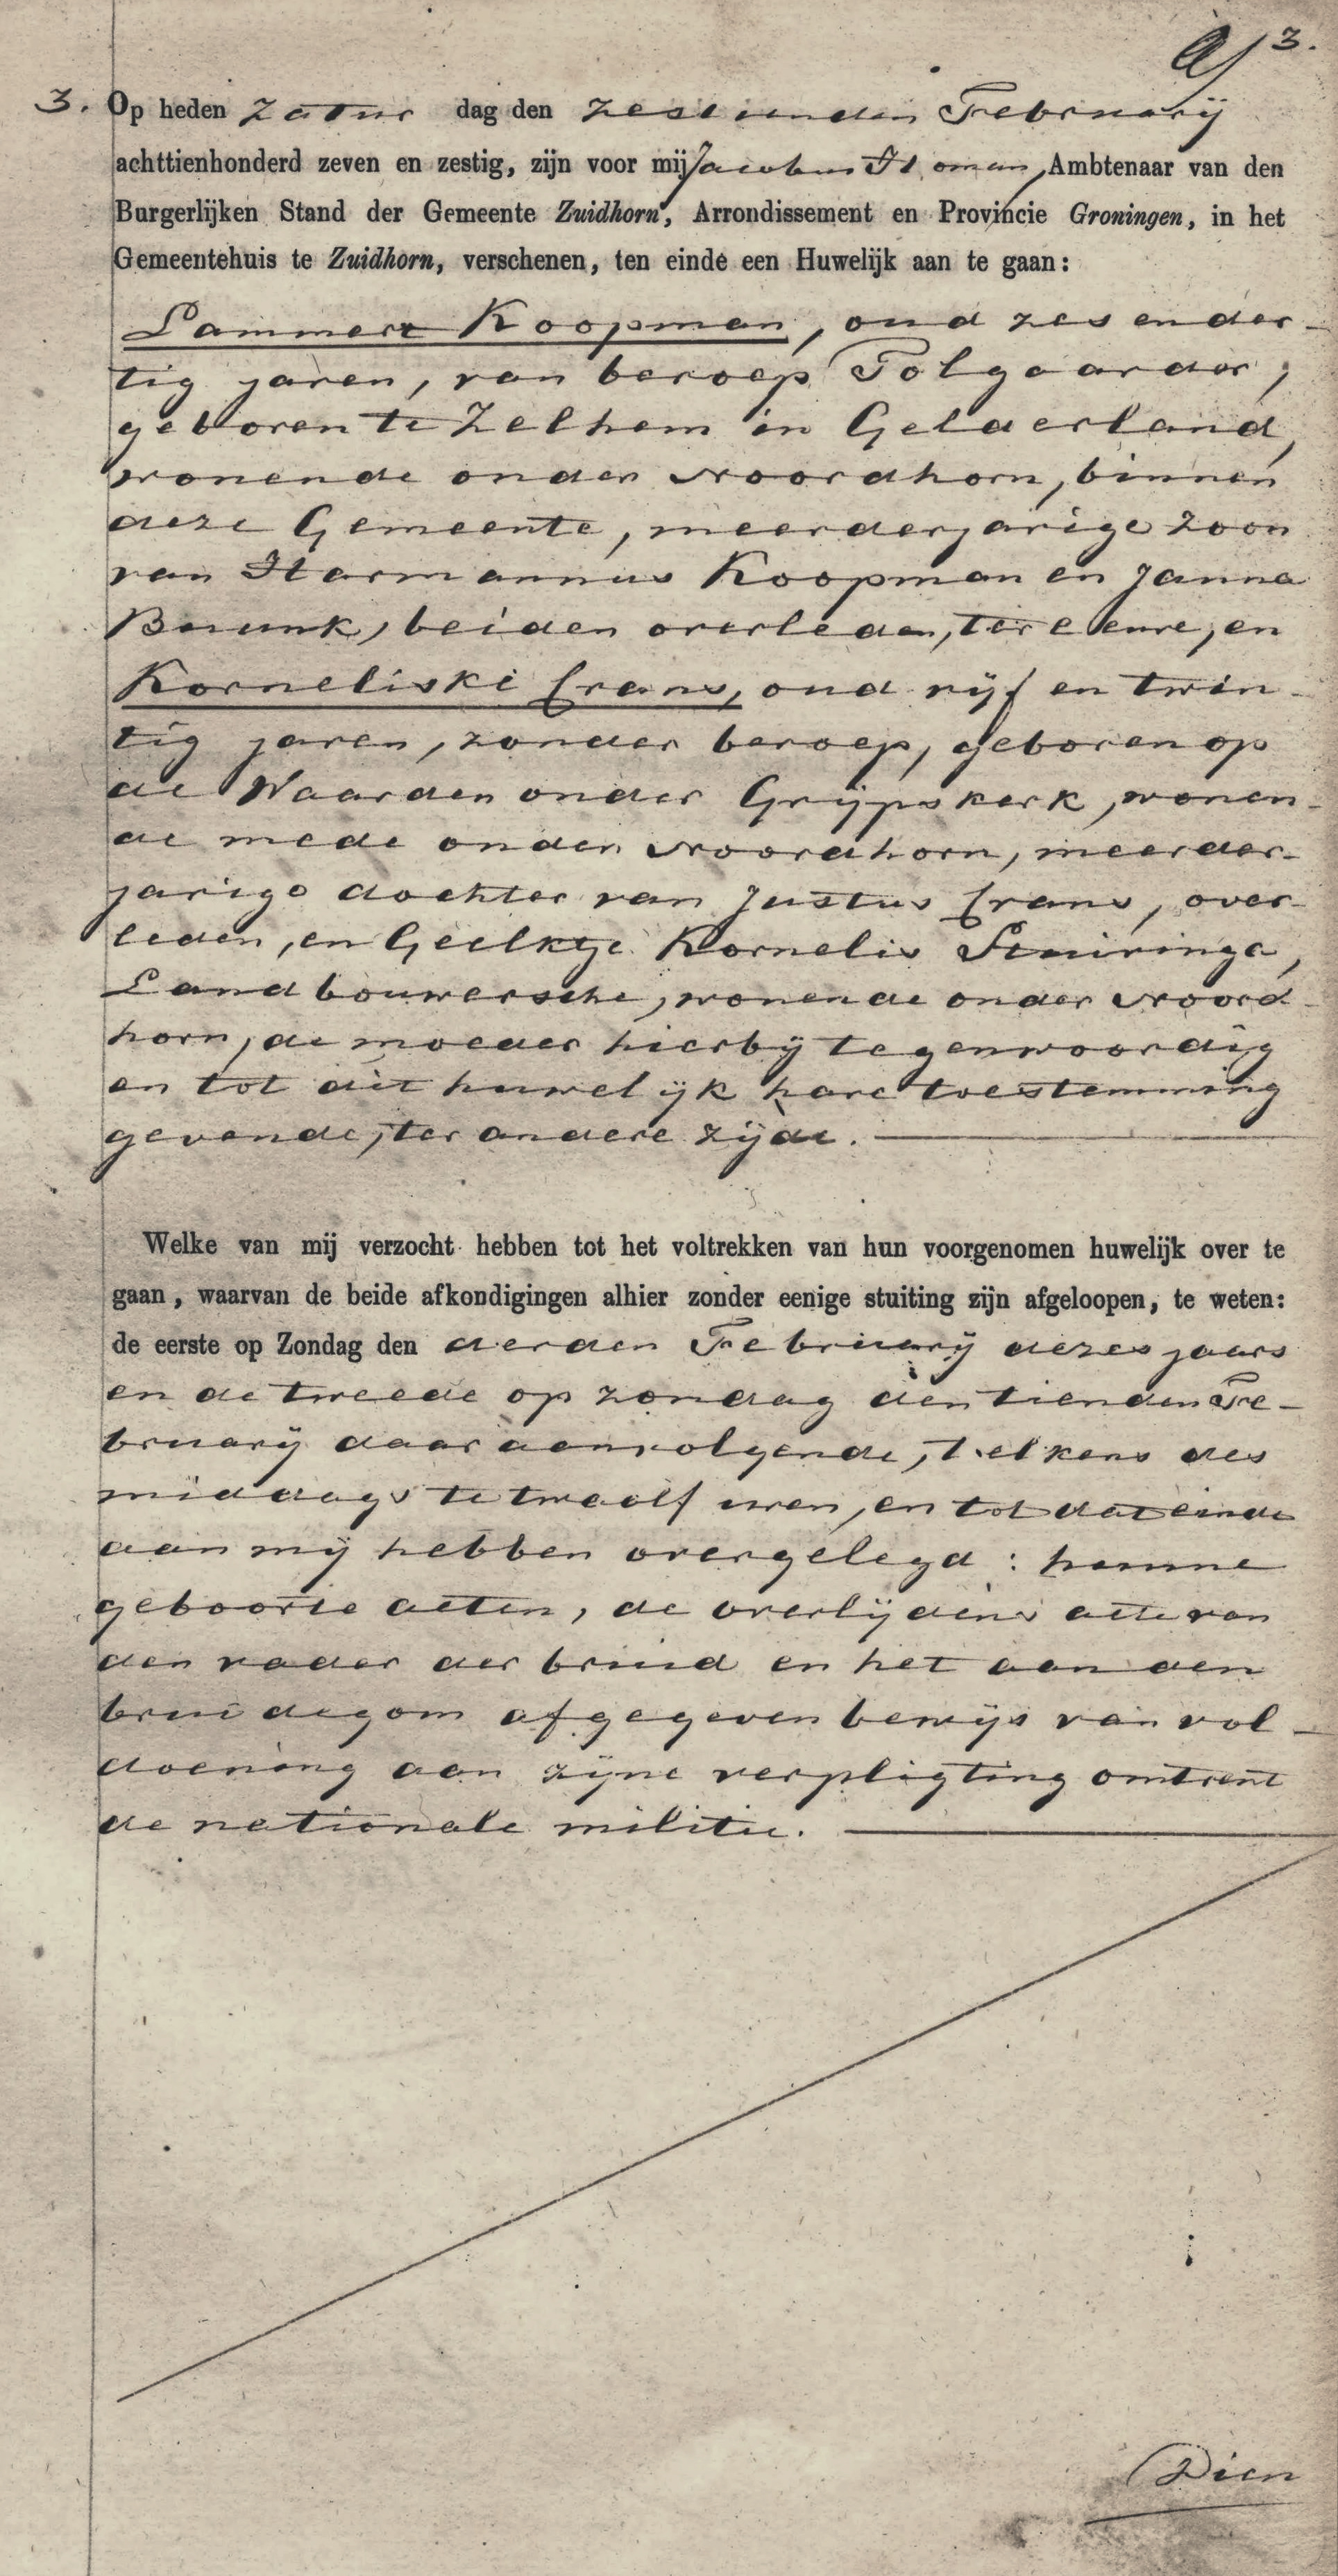 3.
3. Op heden Zatur dag den zestienden February
achttienhonderd zeven en zestig, zijn voor mij Jacobus Homan, Ambtenaar van den
Burgerlijken Stand der Gemeente Zuidhorn, Arrondissement en Provincie Groningen, in het
Gemeentehuis te Zuidhorn, verschenen, ten einde een Huwelijk aan te gaan:
Lammert Koopman, oud zes en der-
tig jaren, van beroep Tolgaarder,
geboren te Zelhem in Gelderland,
wonende onder Noordhorn, binnen
deze Gemeente, meerderjarige zoon
van Harmannus Koopman en Janna
beiden overleden, ter eenre, en
Korneliske Crans, oud vijf en twin-
tig jaren, zonder beroep, geboren op
de Waarden onder Grijpskerk, wonen-
de mede onder Noordhorn, meerder-
jarige dochter van Justus Crans, over-
leden, en Geelktje Kornelis Stuiringa,
Landbouwersche, wonende onder Noord-
horn, de moeder hierbij tegenwoordig
en tot dit huwelijk hare toestemming
gevende, ter andere zijde.
Welke van mij verzocht hebben tot het voltrekken van hun voorgenomen huwelijk over te
gaan, waarvan de beide afkondigingen alhier zonder eenige stuiting zijn afgeloopen, te weten:
de eerste op Zondag den derden February dezes jaars
en de tweede op zondag den tienden Fe-
bruary daaraanvolgende, telkens des
middags te twaalf uren, en tot dat einde
aan mij hebben overgelegd: hunne
geboorte acten, de overlijdens acte van
den vader der bruid en het aan den
bruidegom afgegeven bewijs van vol-
doening aan zijne verpligting omtrent
de nationale militie.
Dien